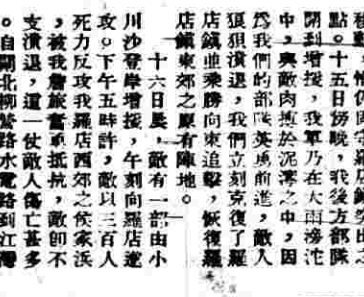 點。十五日傍晚，我後方部隊
開到增援，我軍乃在大雨滂沱
中，與敵肉搏於泥濘之中，因
爲我們的部隊英勇前進，敵人
狼狽潰退，我們立刻克復了羅
店鎮並乘勝向東追擊，恢復羅
店鎮東郊之原有陣地。
十六日晨，敵有一部由小
川沙登岸增援，午刻向羅店進
攻。下午五時許，敵以三百人
死力反攻我羅店西郊之候家浜
，被我詹旅奮勇抵抗，敵卽不
支潰退，這一仗敵人傷亡甚多
。自閘北柳營路水電路到江灣